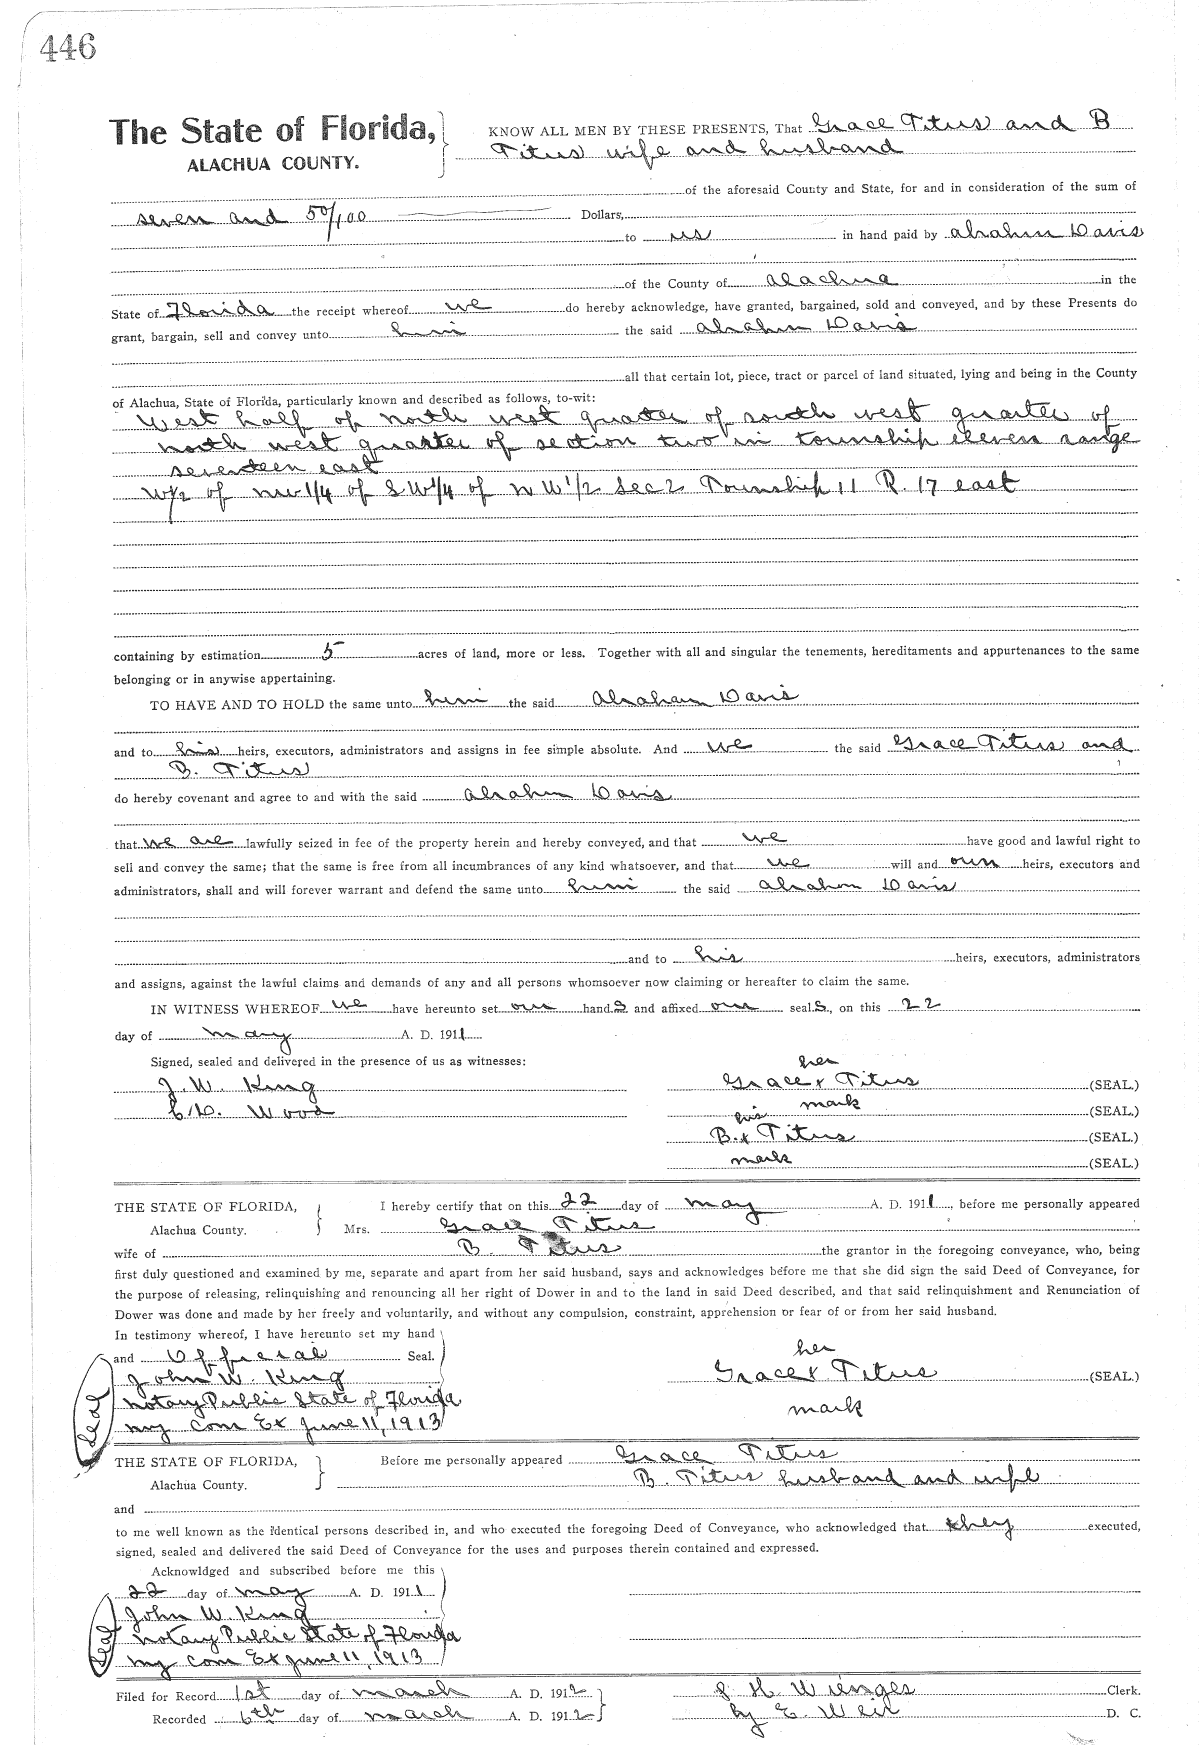 446
The State of Florida, KNOW ALL MEN BY THESE PRESENTS, That Grace Titus and B
ALACHUA COUNTY. Titus wife and husband
of the aforesaid County and State, for and in consideration of the sum of
seven and 50/100 Dollars,
to us in hand paid by Abraham Davis
of the County of Alachua in the
State of Florida the receipt whereof we do hereby acknowledge, have granted, bargained, sold and conveyed, and by these Presents do
grant, bargain, sell and convey unto him the said Abraham Davis
all that certain lot, piece, tract or parcel of land situated, lying and being in the County
of Alachua, State of Florida, particularly known and described as follows, to-wit:
West half of north west quarter of south west quarter of
north west quarter of section two in township eleven range
seventeen east
W/2 of nw 1/4 of S W 1/4 of n W 1/2 Sec 2 Township 11 R. 17 east
containing by estimation 5 acres of land, more or less. Together with all and singular the tenements, hereditaments and appurtenances to the same
belonging or in anywise appertaining.
TO HAVE AND TO HOLD the same unto him the said Abraham Davis
and to his heirs, executors, administrators and assigns in fee simple absolute. And we the said Grace Titus and
B. Titus
do hereby covenant and agree to and with the said Abraham Davis
that we are lawfully seized in fee of the property herein and hereby conveyed, and that we have good and lawful right to
sell and convey the same; that the same is free from all incumbrances of any kind whatsoever, and that we will and our heirs, executors and
administrators, shall and will forever warrant and defend the same unto him the said Abraham Davis
and to his heirs, executors, administrators
and assigns, against the lawful claims and demands of any and all persons whomsoever now claiming or hereafter to claim the same.
IN WITNESS WHEREOF we have hereunto set our hand s and affixed our seal s, on this 22
day of may A. D. 1911
Signed, sealed and delivered in the presence of us as witnesses: her
J. W. King Grace x Titus (SEAL.)
mark
Wood (SEAL.)
his
B. x Titus (SEAL.)
mark (SEAL.)
THE STATE OF FLORIDA, I hereby certify that on this 22 day of may A. D. 1911, before me personally appeared
Alachua County. Mrs. Grace Titus
wife of B. Titus the grantor in the foregoing conveyance, who, being
first duly questioned and examined by me, separate and apart from her said husband, says and acknowledges before me that she did sign the said Deed of Conveyance, for
the purpose of releasing, relinquishing and renouncing all her right of Dower in and to the land in said Deed described, and that said relinquishment and Renunciation of
Dower was done and made by her freely and voluntarily, and without any compulsion, constraint, apprehension or fear of or from her said husband.
In testimony whereof, I have hereunto set my hand
and Official Seal. her
John W. King Grace x Titus (SEAL.)
Seal notary Public State of Florida mark
my com Ex June 11, 1913
THE STATE OF FLORIDA, Before me personally appeared Grace Titus
Alachua County. B. Titus husband and wife
and
to me well known as the identical persons described in, and who executed the foregoing Deed of Conveyance, who acknowledged that they executed,
signed, sealed and delivered the said Deed of Conveyance for the uses and purposes therein contained and expressed.
Acknowldged and subscribed before me this
22 day of may A. D. 1911
John W. King
Seal notary Public State of Florida
my com Ex June 11, 1913
Filed for Record 1st day of march A. D. 1912 S H. Wienges Clerk.
Recorded 6th day of march A. D. 1912 by E. Weir D. C.